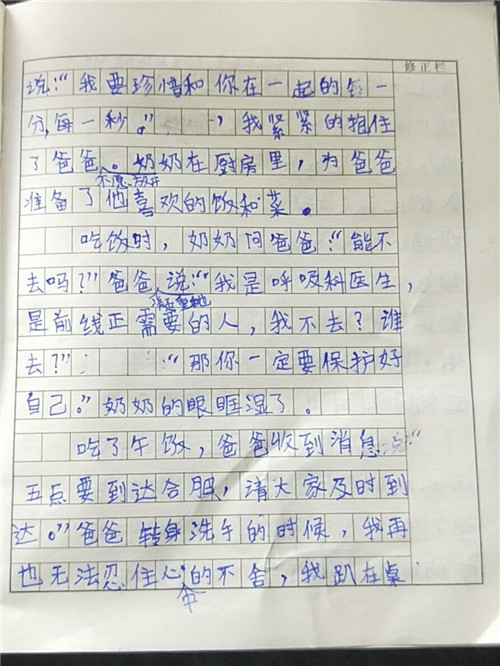 修正栏
说:“我要珍惜和你在一起的每一
分,每一秒。” ,我紧紧的抱住
了爸爸。奶奶在厨房里,为爸爸
不愿放开
准备了他喜欢的饭和菜。
吃饭时,奶奶问爸爸:“能不
去吗?”爸爸说:“我是呼吸科医生,
是前线正需要的人,我不去?谁
去?” “那你一定要保护好
自己。”奶奶的眼眶湿了。
吃了午饭,爸爸收到消息:“
五点要到达合肥,请大家及时到
达。”爸爸转身洗手的时候,我再
也无法忍住心的不舍,我趴在桌
中